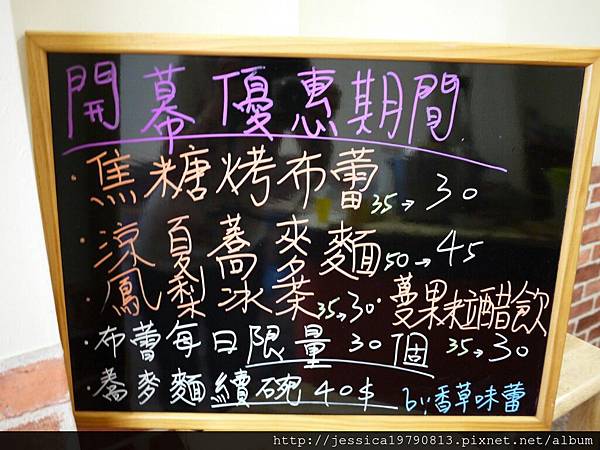 開幕優惠期間
·焦糖烤布蕾35→30
·涼夏蕎麥麵50→45
·鳳梨冰茶35→30
·蔓果粒醋飲
35→30
·布蕾每日限量30個
·蕎麥麵續碗40$
by:香草味蕾
http://jessica19790813.pixnet.net/album